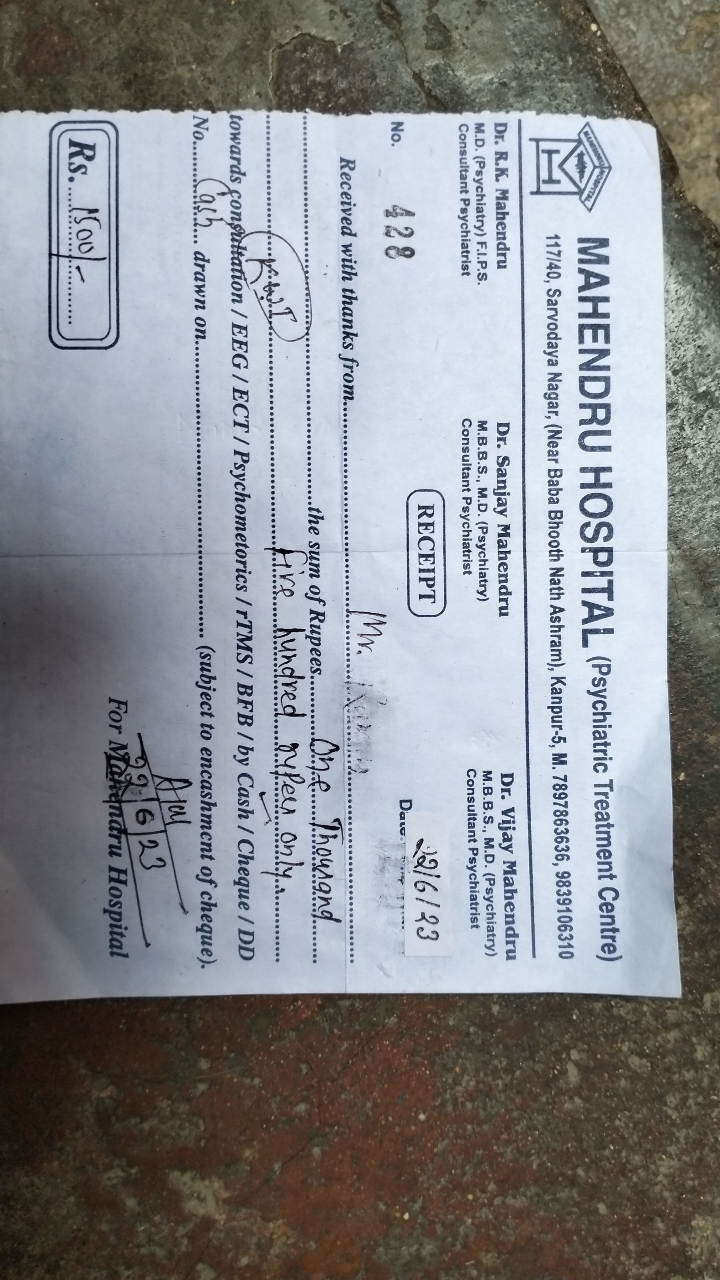 MAHENDRU HOSPITAL (Psychiatric Treatment Centre)
117/40, Sarvodaya Nagar, (Near Baba Bhooth Nath Ashram), Kanpur-5, M. 7897863636, 9839106310
Dr. R.K. Mahendru
M.D. (Psychiatry) F.I.P.S.
Consultant Psychiatrist
Dr. Sanjay Mahendru
M.B.B.S., M.D. (Psychiatry)
Consultant Psychiatrist
Dr. Vijay Mahendru
M.B.B.S., M.D. (Psychiatry)
Consultant Psychiatrist
No. 428
RECEIPT
Date 22/6/23
Received with thanks from Mr.
the sum of Rupees One Thousand
five hundred rupees only.
towards consultation / EEG / ECT / Psychometorics / rTMS / BFB / by Cash / Cheque / DD
No. Cash drawn on (subject to encashment of cheque).
Rs. 1500/-
22/6/23
For Mahendru Hospital